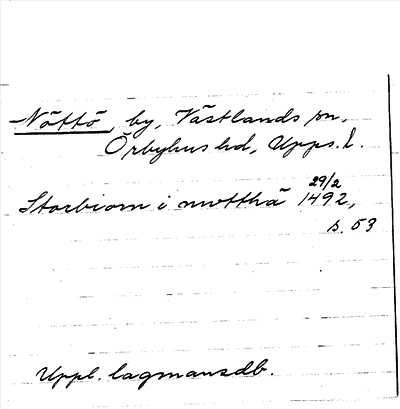 Nöttö, by, Västlands sn,
Örbyhus hd, Upps. l.
Storbiorn i nvtthä 29/2 1492,
s. 53
Uppl. lagmansdb.